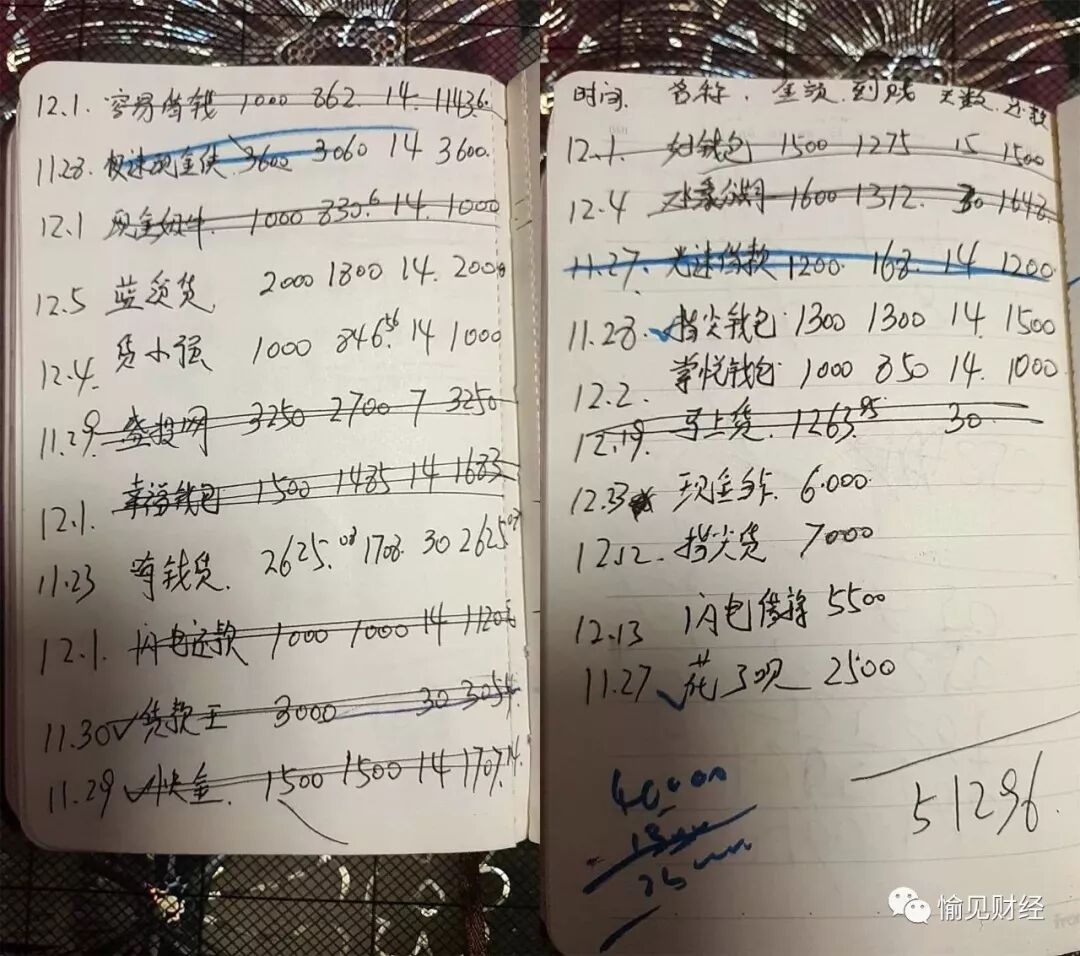 12.1. 容易借钱 1000 862. 14. 1143.6
11.28. 极速现金侠 3600 3060 14 3600.
12.1 现金蚂蚁 1000 830.6 14. 1000
12.5 蓝领贷 2000 1800 14. 2000
12.4. 贷小强 1000 846.56 14 1000
11.29. 盛投网 3250 2700 7 3250
12.1. 幸福钱包 1500 1485 14 1683
11.23 有钱贷. 2625.08 1708. 30 2625.07
12.1. 闪电还款 1000 1000 14 1120
11.30 ✓贷款王 3000 30 3054
11.29 ✓快金. 1500 1500 14 1707.14
时间. 名称. 金额. 到账 天数. 还款
12.1. 钱包 1500 1275 15 1500
12.4 大象分期 1600 1312. 30 1648.
11.27. 光速借款 1200. 168. 14 1200
11.28. ✓指尖钱包 1300 1300 14 1500
12.2. 掌悦钱包 1000 850 14. 1000
12.19. 马上贷. 1263.95 30
12.3 现金卡 6000
12.12. 指尖贷 7000
12.13 闪电借 5500
11.27 ✓花了呗 2500
40000
51296
愉见财经